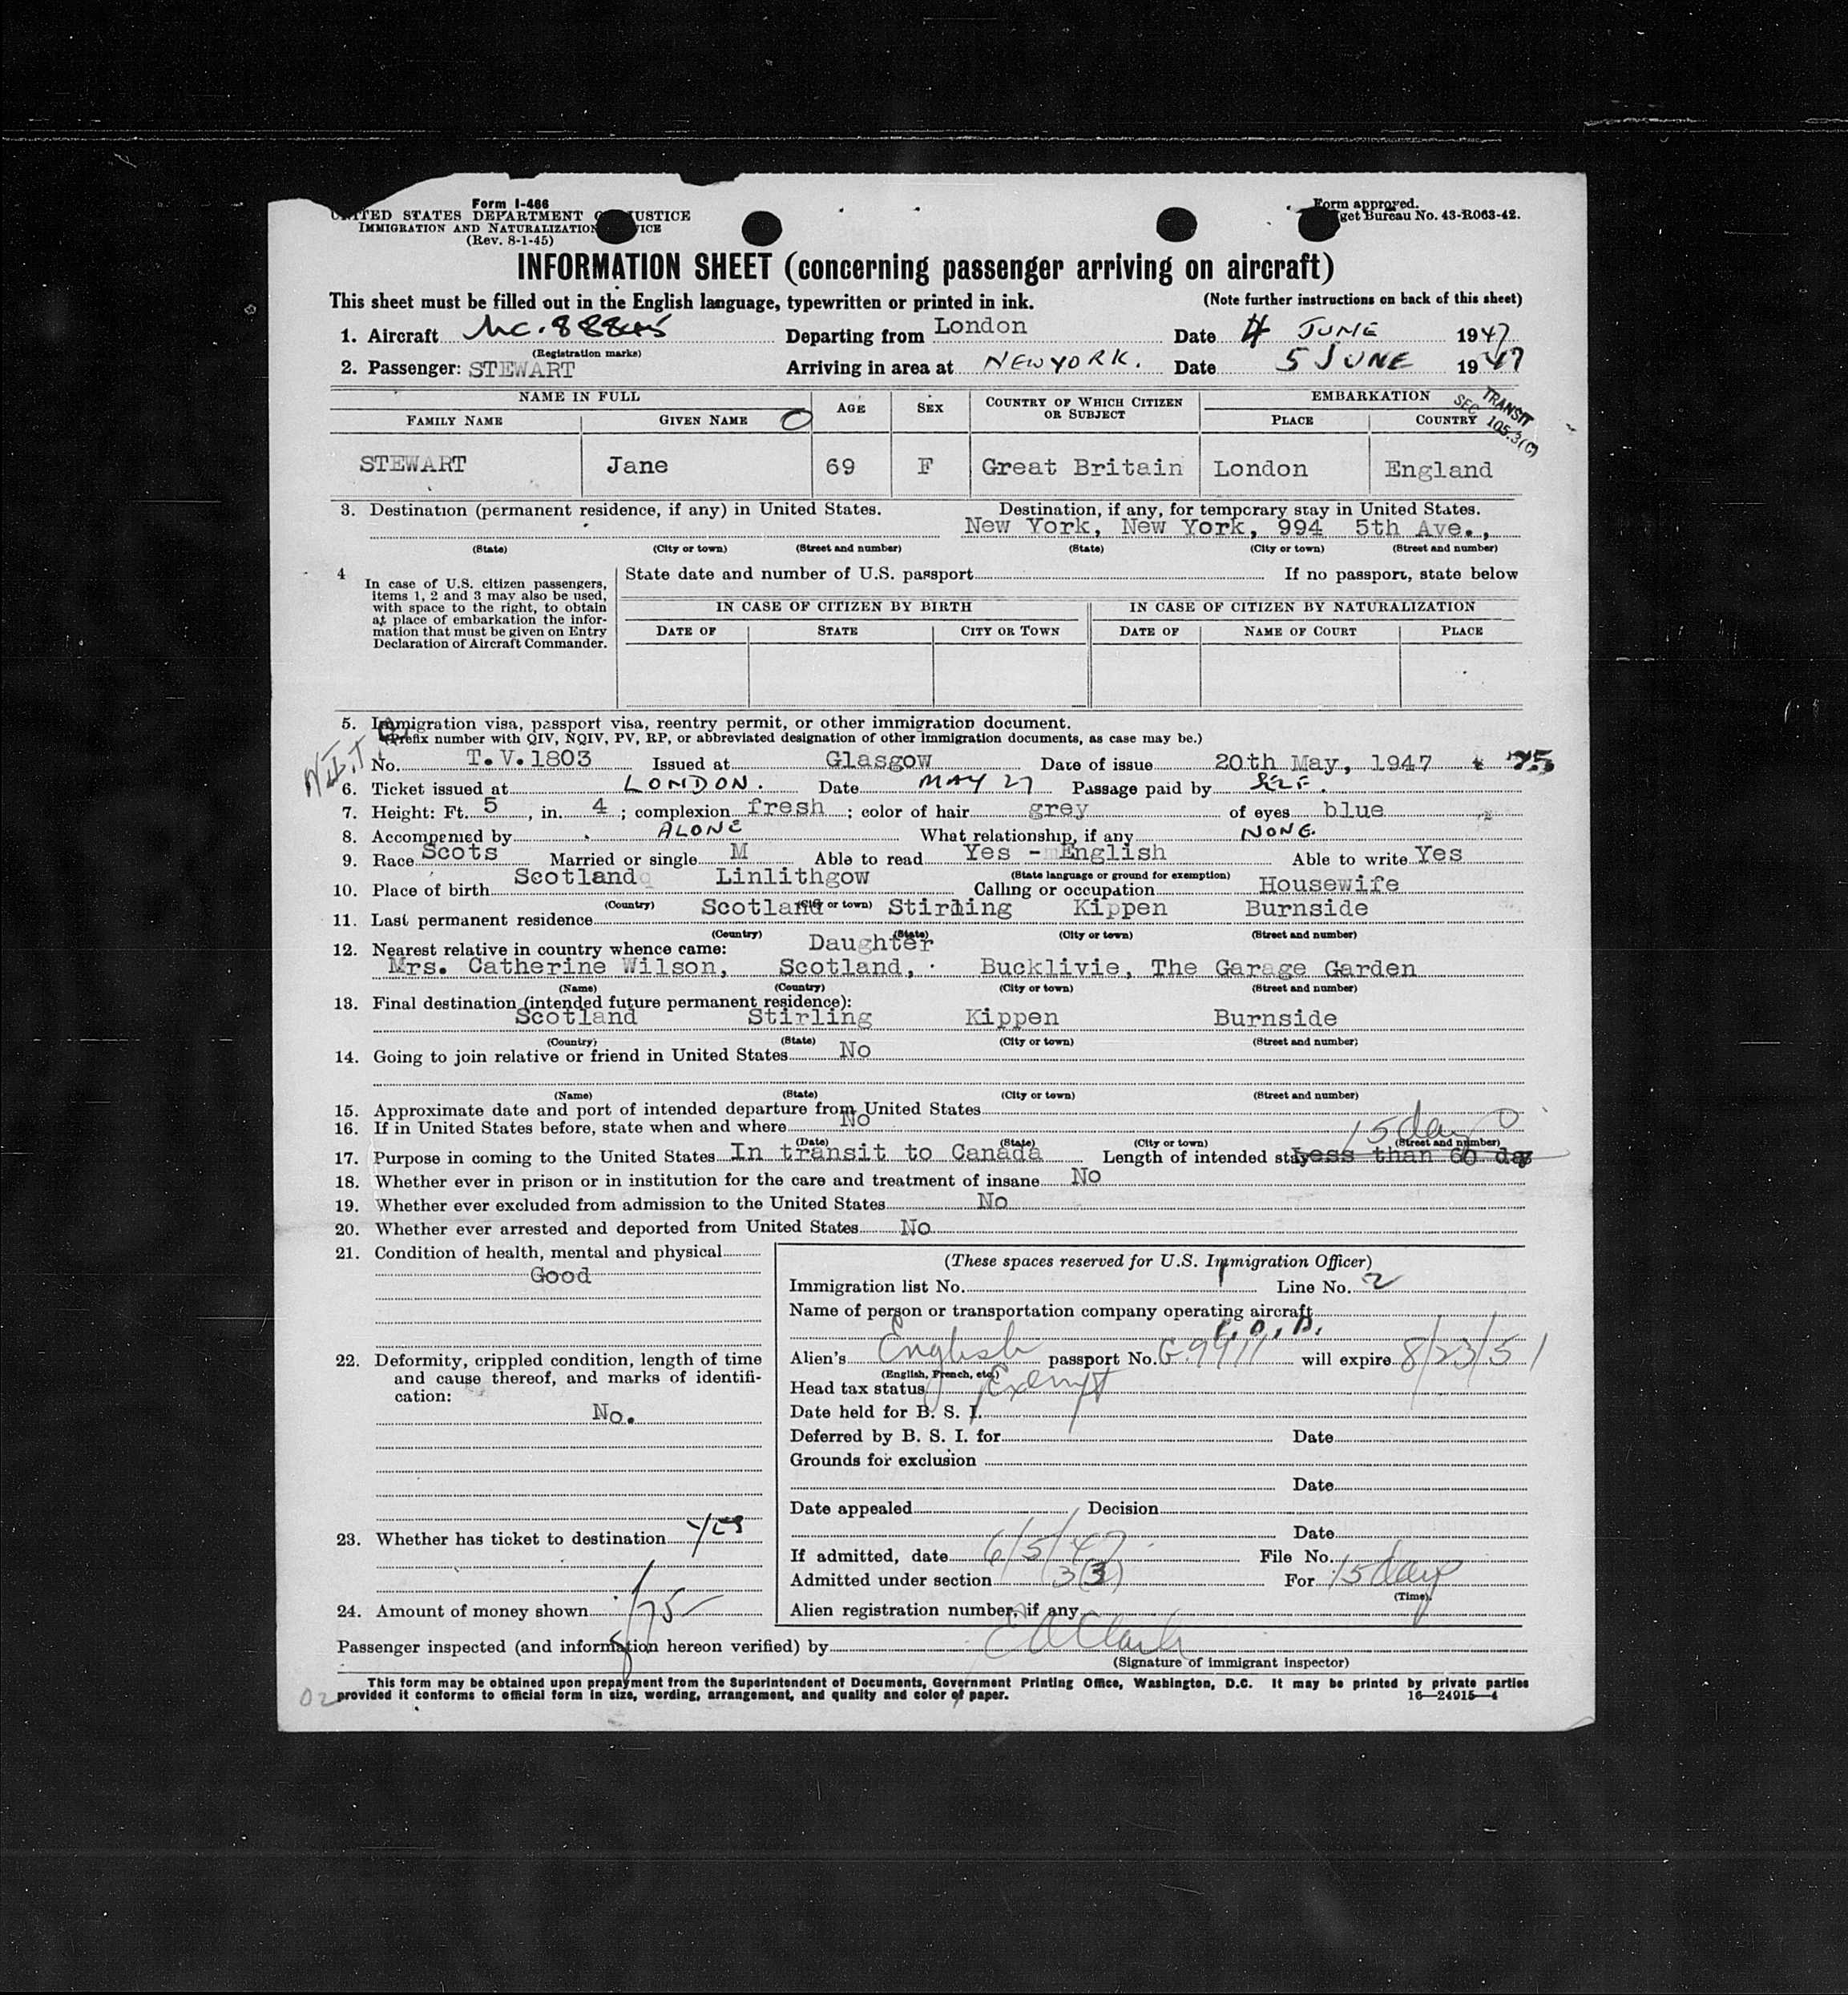 Form I-466
UNITED STATES DEPARTMENT OF JUSTICE
IMMIGRATION AND NATURALIZATION SERVICE
(Rev. 8-1-45)
Form approved.
Budget Bureau No. 43-R063-42.
INFORMATION SHEET (concerning passenger arriving on aircraft)
This sheet must be filled out in the English language, typewritten or printed in ink. (Note further instructions on back of this sheet)
1. Aircraft NC. 88845 Departing from London Date 4 JUNE 1947
(Registration marks)
2. Passenger: STEWART Arriving in area at NEW YORK. Date 5 JUNE 1947
NAME IN FULL AGE SEX COUNTRY OF WHICH CITIZEN OR SUBJECT EMBARKATION
FAMILY NAME GIVEN NAME PLACE COUNTRY
TRANSIT
SEC 105.3(C)
STEWART Jane 69 F Great Britain London England
3. Destination (permanent residence, if any) in United States. Destination, if any, for temporary stay in United States.
New York, New York, 994 5th Ave.,
(State) (City or town) (Street and number) (State) (City or town) (Street and number)
4 In case of U.S. citizen passengers, items 1, 2 and 3 may also be used, with space to the right, to obtain at place of embarkation the information that must be given on Entry Declaration of Aircraft Commander.
State date and number of U.S. passport If no passport, state below
IN CASE OF CITIZEN BY BIRTH IN CASE OF CITIZEN BY NATURALIZATION
DATE OF STATE CITY OR TOWN DATE OF NAME OF COURT PLACE
5. Immigration visa, passport visa, reentry permit, or other immigration document.
(Prefix number with QIV, NQIV, PV, RP, or abbreviated designation of other immigration documents, as case may be.)
No. T.V.1803 Issued at Glasgow Date of issue 20th May, 1947
6. Ticket issued at LONDON. Date MAY 27 Passage paid by SELF.
7. Height: Ft. 5, in. 4; complexion fresh; color of hair grey of eyes blue
8. Accompanied by ALONE What relationship, if any NONE.
9. Race Scots Married or single M Able to read Yes - English Able to write Yes
(State language or ground for exemption)
10. Place of birth Scotland Linlithgow Calling or occupation Housewife
(Country) (City or town)
11. Last permanent residence Scotland Stirling Kippen Burnside
(Country) (State) (City or town) (Street and number)
12. Nearest relative in country whence came: Daughter
Mrs. Catherine Wilson, Scotland, Bucklivie, The Garage Garden
(Name) (Country) (City or town) (Street and number)
13. Final destination (intended future permanent residence):
Scotland Stirling Kippen Burnside
(Country) (State) (City or town) (Street and number)
14. Going to join relative or friend in United States No
(Name) (State) (City or town) (Street and number)
15. Approximate date and port of intended departure from United States
16. If in United States before, state when and where No
(Date) (State) (City or town) (Street and number)
15 day
17. Purpose in coming to the United States In transit to Canada Length of intended stay Less than 60 days
18. Whether ever in prison or in institution for the care and treatment of insane No
19. Whether ever excluded from admission to the United States No
20. Whether ever arrested and deported from United States No
21. Condition of health, mental and physical
Good
22. Deformity, crippled condition, length of time and cause thereof, and marks of identification:
No.
23. Whether has ticket to destination yes
24. Amount of money shown
(These spaces reserved for U.S. Immigration Officer)
Immigration list No. 1 Line No. 2
Name of person or transportation company operating aircraft
Alien's English passport No. G.9411 will expire 8/23/51
(English, French, etc.)
Head tax status Exempt
Date held for B. S. I.
Deferred by B. S. I. for Date
Grounds for exclusion
Date
Date appealed Decision
Date
If admitted, date 6/5/47 File No.
Admitted under section 3(3) For 15 days
(Time)
Alien registration number, if any
Passenger inspected (and information hereon verified) by E A Clark
(Signature of immigrant inspector)
This form may be obtained upon prepayment from the Superintendent of Documents, Government Printing Office, Washington, D.C. It may be printed by private parties
provided it conforms to official form in size, wording, arrangement, and quality and color of paper. 16—24915-4